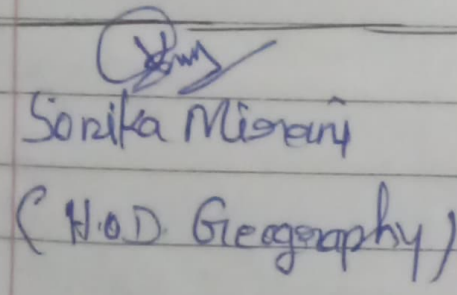 Sonika Misrani
(H.O.D. Geography)